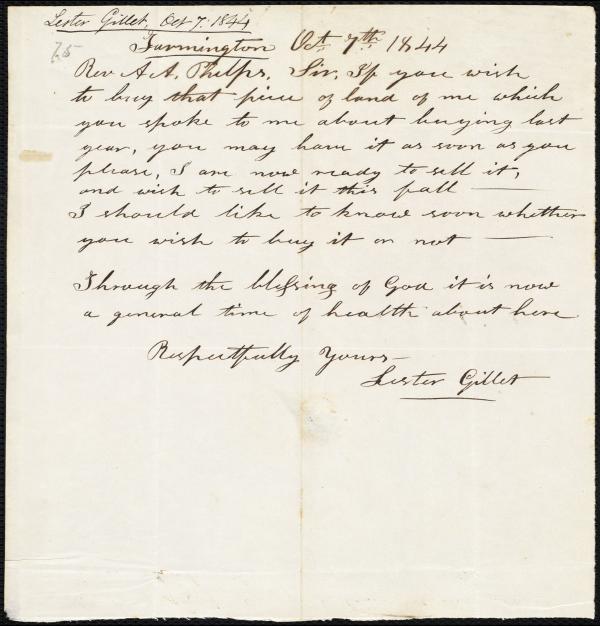 Lester Gillet, Oct 7. 1844
75
Farmington Oct 7th 1844
Rev A. A. Phelps, Sir, If you wish
to buy that piece of land of me which
you spoke to me about buying last
year, you may have it as soon as you
please, I are now ready to sell it,
and wish to sell it this fall —
I should like to know soon whether
you wish to buy it or not —
Through the blessing of God it is now
a general time of health about here
Respectfully Yours—
Lester Gillet